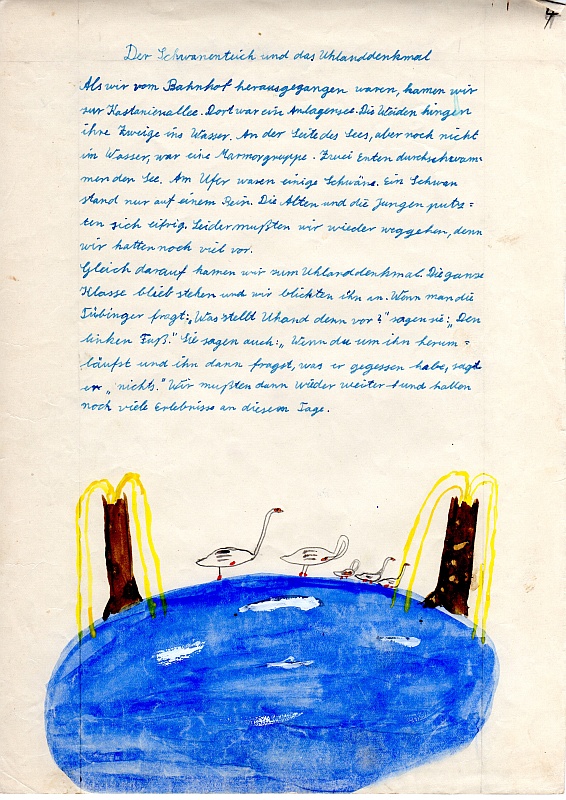 4
Der Schwanenteich und das Uhlanddenkmal
Als wir vom Bahnhof herausgegangen waren, kamen wir
zur Kastanienallee. Dort war ein Anlagensee. Die Weiden hingen
ihre Zweige ins Wasser. An der Seite des Sees, aber noch nicht
im Wasser, war eine Marmorgruppe. Zwei Enten durchschwam-
men den See. Am Ufer waren einige Schwäne. Ein Schwan
stand nur auf einem Bein. Die Alten und die Jungen putz=
ten sich eifrig. Leider mußten wir wieder weggehen, denn
wir hatten noch viel vor.
Gleich darauf kamen wir zum Uhlanddenkmal. Die ganze
Klasse blieb stehen und wir blickten ihn an. Wenn man die
Tübinger fragt: „Was stellt Uhand denn vor?" sagen sie: „Den
linken Fuß." Sie sagen auch: „Wenn du um ihn herum=
läufst und ihn dann fragst, was er gegessen habe, sagt
er „nichts." Wir mußten dann wieder weiter und hatten
noch viele Erlebnisse an diesem Tage.